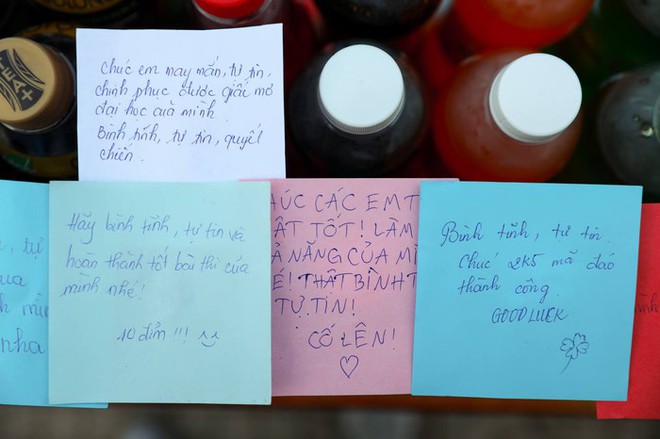 Chúc em may mắn, tự tin,
chinh phục được giấc mơ
đại học của mình
Bình tĩnh, tự tin, quyết
chiến.
Hãy bình tĩnh, tự tin và
hoàn thành tốt bài thi của
mình nhé!
10 điểm!!!
ÚC CÁC EM T
ẬT TỐT! LÀM
Ả NĂNG CỦA MÌ
É! THẬT BÌNH T
TỰ TIN!
CỐ LÊN!
Bình tĩnh, tự tin.
Chúc 2K5 mã đáo
thành công
GOODLUCK